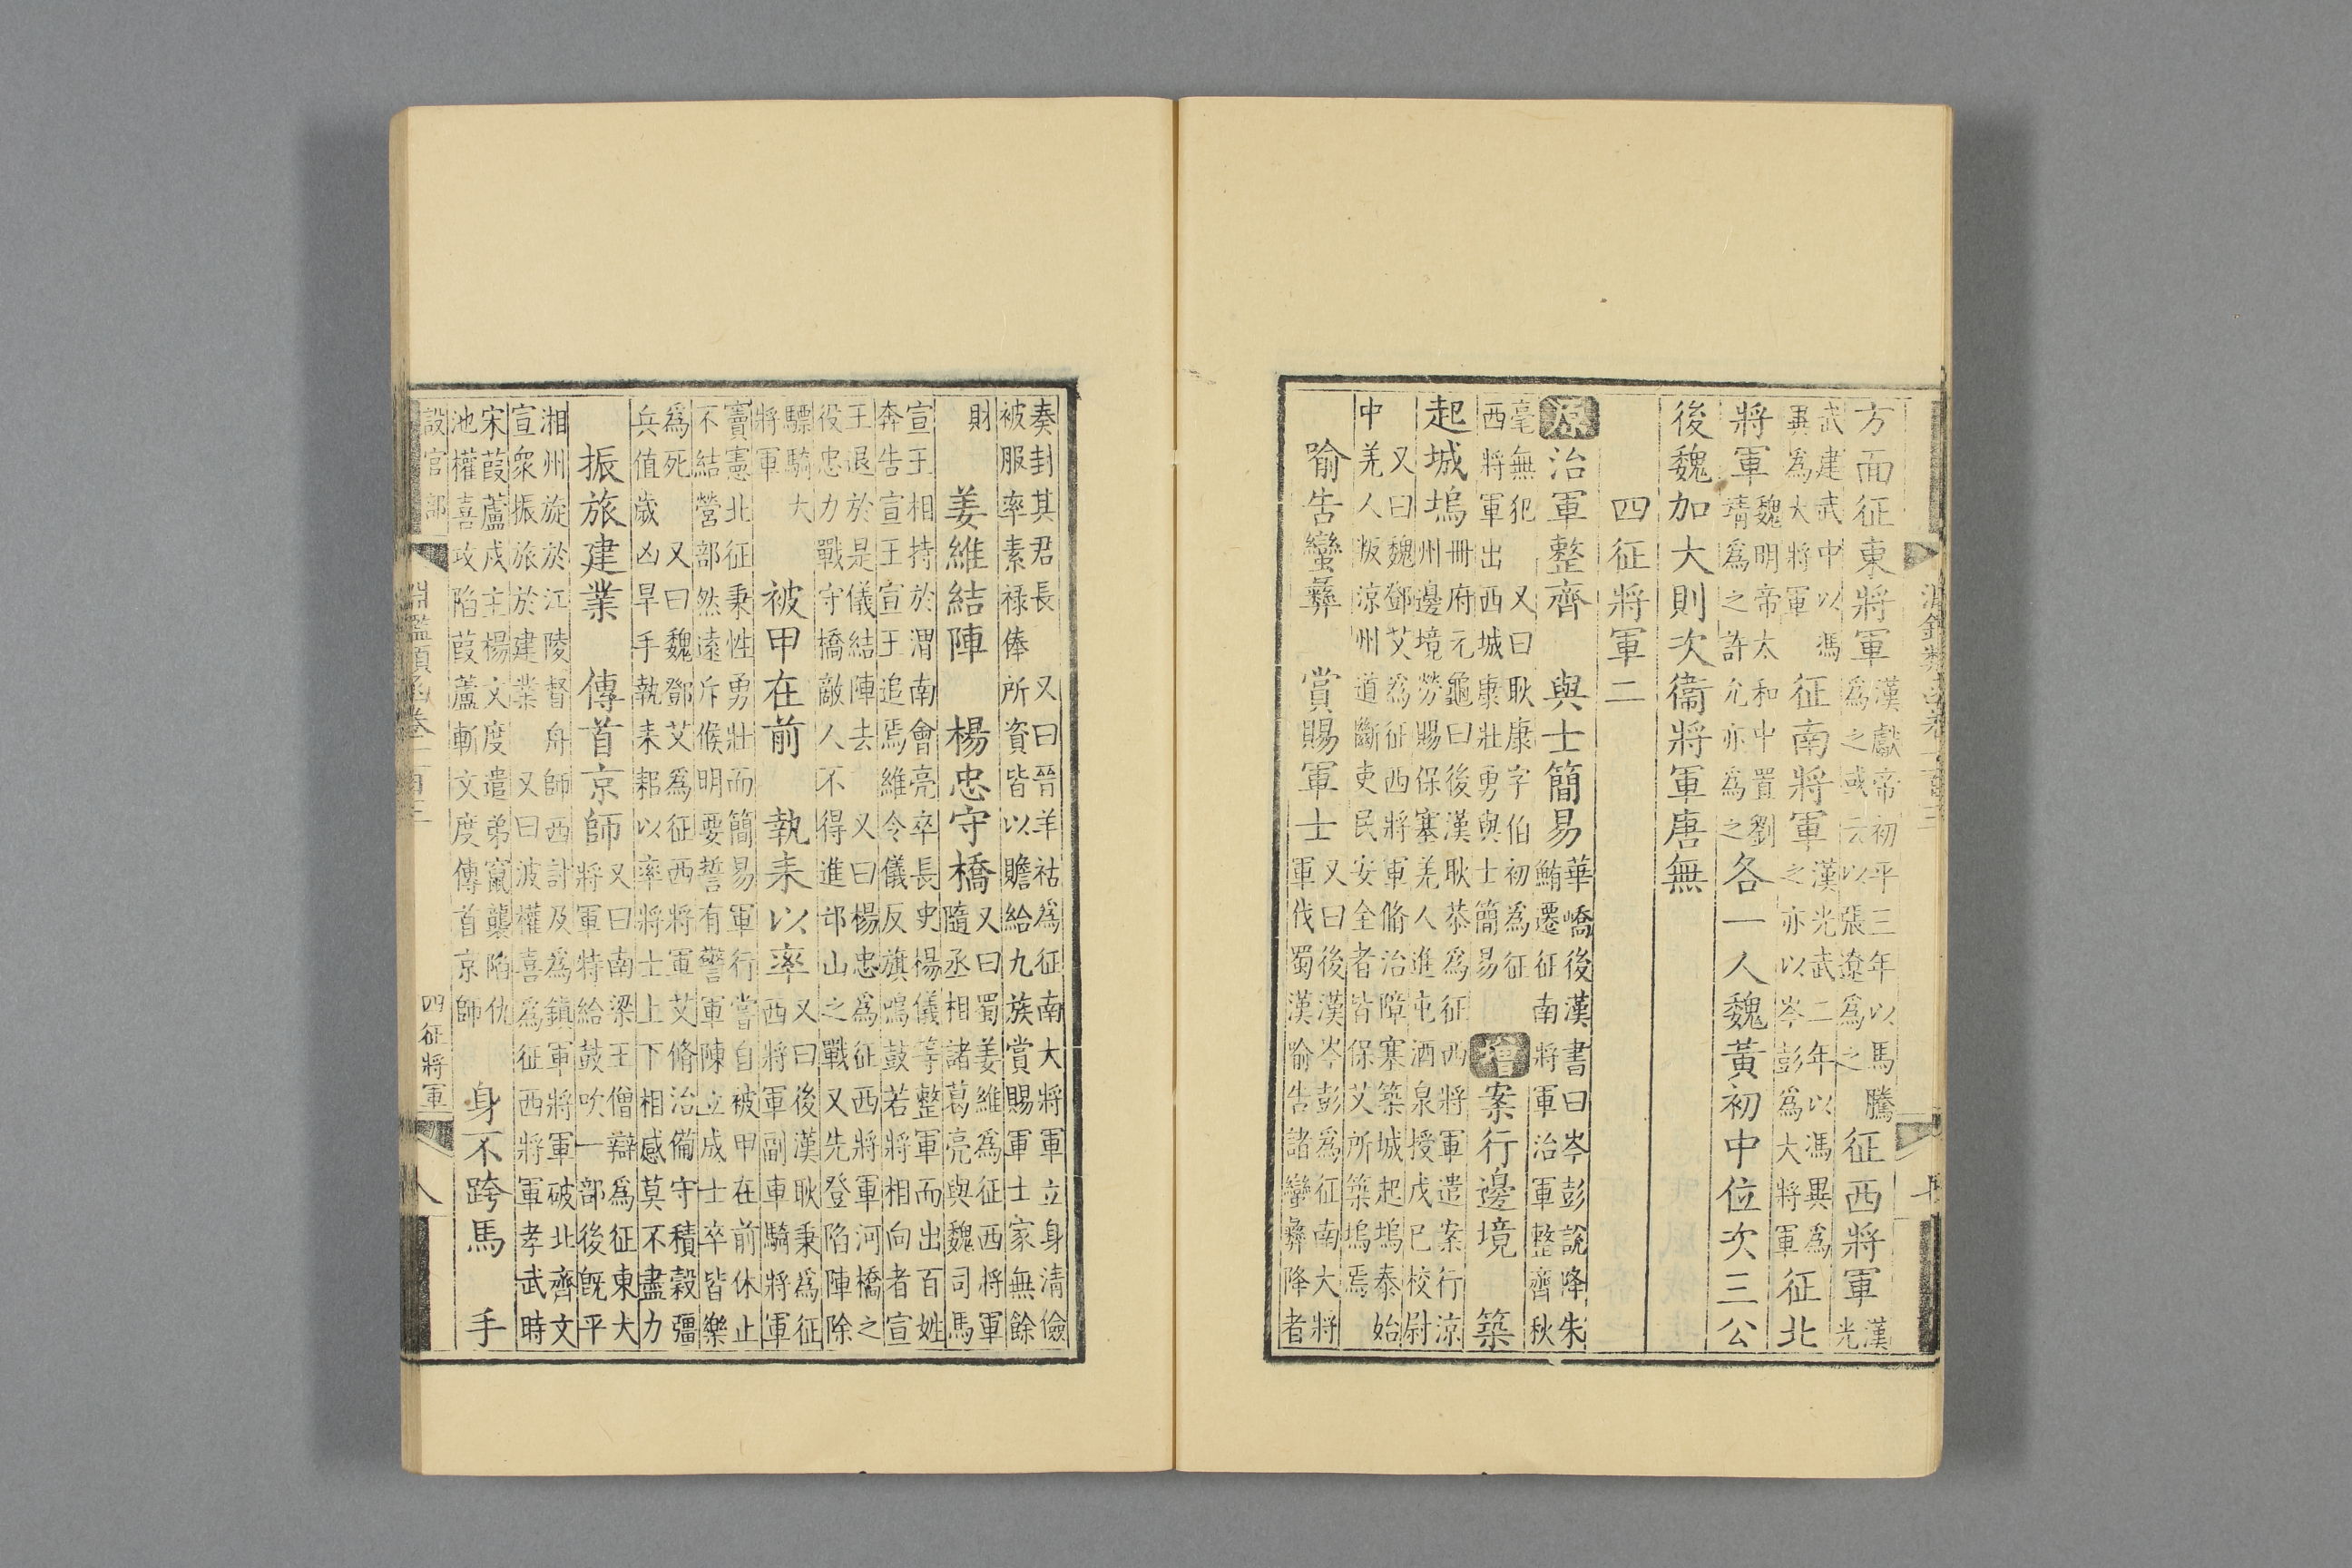 方面征東將軍
漢獻帝初平三年以馬騰
爲之或云以張遼爲之
征西將軍
漢
光
武建武中以馮
異爲大將軍
征南將軍
漢光武二年以馮異爲
之亦以岑彭爲大將軍
征北
將軍
魏明帝太和中置劉
靖爲之許允亦爲之
各一人魏黃初中位次三公
後魏加大則次衞將軍唐無
四征將軍二
原治軍整齊 與士簡易
華嶠後漢書曰岑彭說降朱
鮪遷征南將軍治軍整齊秋
毫無犯 又曰耿康字伯初爲征
西將軍出西城康壯勇與士簡易
增案行邊境 築
起城塢
冊府元龜曰後漢耿恭爲征西將軍遣案行涼
州邊境勞賜保塞羌人進屯酒泉授戊巳校尉
又曰魏鄧艾爲征西將軍脩治障塞築城起塢泰始
中羌人叛涼州道斷吏民安全者皆保艾所築塢焉
喻告蠻彝 賞賜軍士
又曰後漢岑彭爲征南大將
軍伐蜀漢喻告諸蠻彝降者
奏封其君長 又曰晉羊祜爲征南大將軍立身清儉
被服率素禄俸所資皆以贍給九族賞賜軍士家無餘
財
姜維結陣 楊忠守橋
又曰蜀姜維爲征西將軍
隨丞相諸葛亮與魏司馬
宣王相持於渭南會亮卒長史楊儀等整軍而出百姓
奔告宣王宣王追焉維令儀反旗鳴鼓若將相向者宣
王退於是儀結陣去 又曰楊忠爲征西將軍河橋之
役忠力戰守橋敵人不得進邙山之戰又先登陷陣除
驃騎大
將軍
被甲在前 執耒以率
又曰後漢耿秉爲征
西將軍副車騎將軍
竇憲北征秉性勇壯而簡易軍行嘗自被甲在前休止
不結營部然遠斥候明要誓有警軍陳立成士卒皆樂
爲死 又曰魏鄧艾爲征西將軍艾脩治備守積穀彊
兵值歲凶旱手執耒耜以率將士上下相感莫不盡力
振旅建業 傳首京師
又曰南梁王僧辯爲征東大
將軍特給鼓吹一部後旣平
湘州旋於江陵督舟師西討及爲鎮軍將軍破北齊文
宣衆振旅於建業 又曰波權喜爲征西將軍孝武時
宋葭蘆戍主楊文度遣弟竄襲陷仇
池權喜攻陷葭蘆斬文度傳首京師
身不跨馬 手
設官部
淵鑑類函卷一百三
四征將軍
八